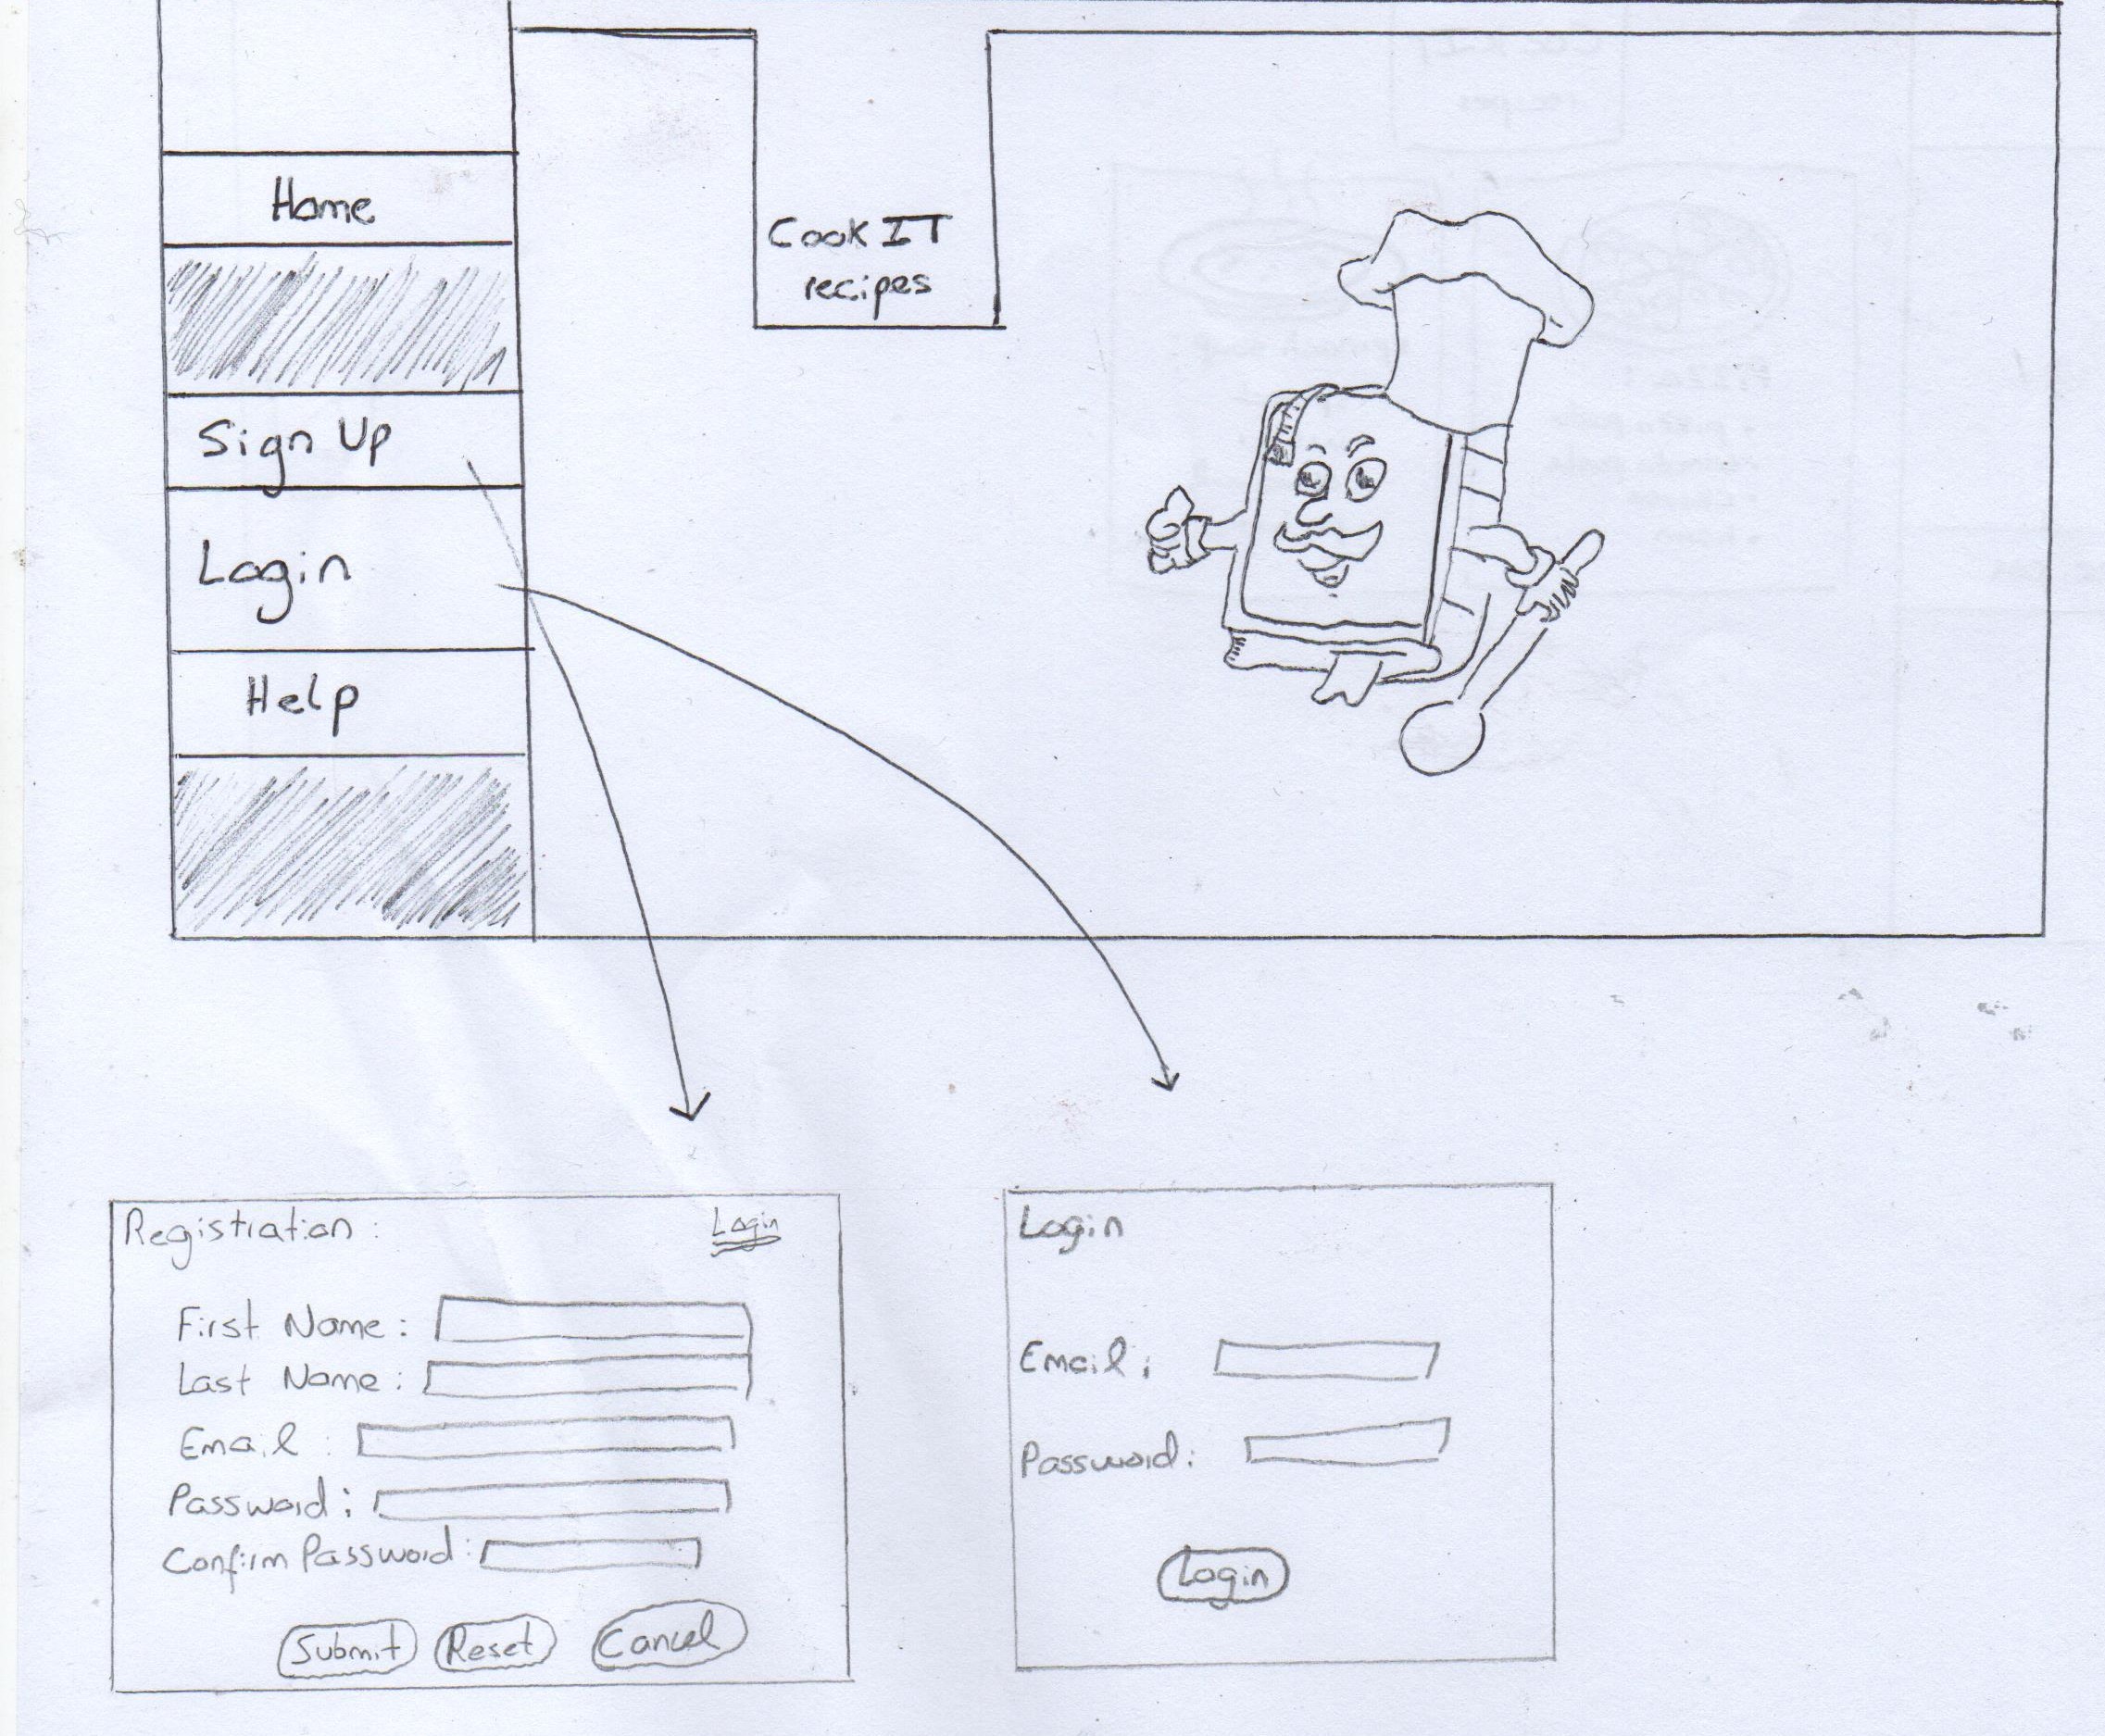 Home
Cook IT
recipes
Sign Up
Login
Help
Registration :
Login
First Name :
Last Name :
Email :
Password :
Confirm Password :
Submit
Reset
Cancel
Login
Email :
Password :
Login